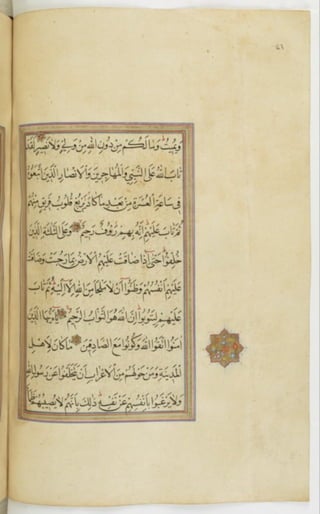 ويميت وما لكم من دون الله من ولي ولا نصير لقد
تاب الله على النبي والمهاجرين والانصار الذين اتبعوه
في ساعة العسرة من بعد ما كاد يزيغ قلوب فريق منهم
ثم تاب عليهم انه بهم رؤف رحيم وعلى الثلثة الذين
خلفوا حتى اذا ضاقت عليهم الارض بما رحبت وضاقت
عليهم انفسهم وظنوا ان لا ملجأ من الله الا اليه ثم تاب
عليهم ليتوبوا ان الله هو التواب الرحيم يا ايها الذين
امنوا اتقوا الله وكونوا مع الصادقين ما كان لاهل
المدينة ومن حولهم من الاعراب ان يتخلفوا عن رسول الله
ولا يرغبوا بانفسهم عن نفسه ذلك بانهم لا يصيبهم ظمأ